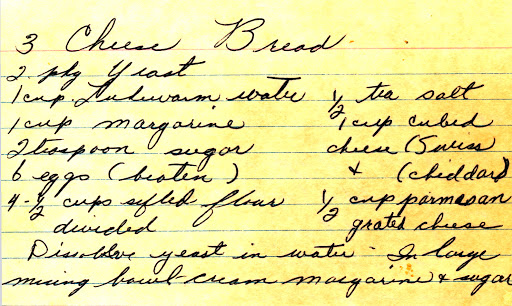 3 Cheese Bread
2 pkg Yeast
1 cup Lukewarm water ½ tea salt
1 cup margarine 1 cup cubed
2 teaspoon sugar cheese (Swiss
6 eggs (beaten) & (cheddar)
4-½ cups sifted flour ½ cup parmesan
divided grated cheese
Dissolve yeast in water - In large
mixing bowl cream margarine & sugar